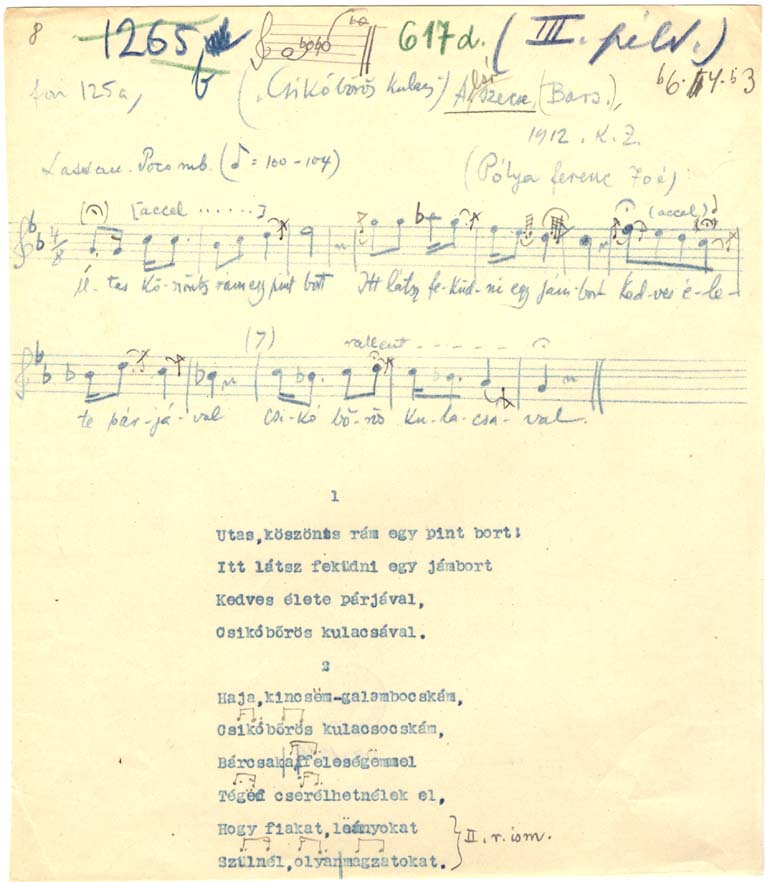 8 1265 b 617d. (III. péld.)
fon 125a, ("Csikóbőrös Kulacs") Alsó Szecse, (Bars.),
1912. K. Z.
Lassan. Poco mb. (♪ = 100-104) (Pólya ferenc 70é)
[accel ......] (accel)
4/8
U-tas Kö-szönts rám egy pint bort Itt látsz fe-küd-ni egy jám-bort Ked-ves é-le-
(7) rallent - - - - - -
te pár-já-val Csi-kó bő-rös Ku-la-csa-val.
1
Utas,köszönts rám egy pint bort!
Itt látsz feküdni egy jámbort
Kedves élete párjával,
Csikóbőrös kulacsával.
2
Haja,kincsëm-galambocskám,
Csikóbőrös kulacsocskám,
Bárcsak a feleségëmmel
Tégëd cserélhetnélek el,
Hogy fiakat,leányokat
Szülnél,olyan magzatokat. } II.r.ism.